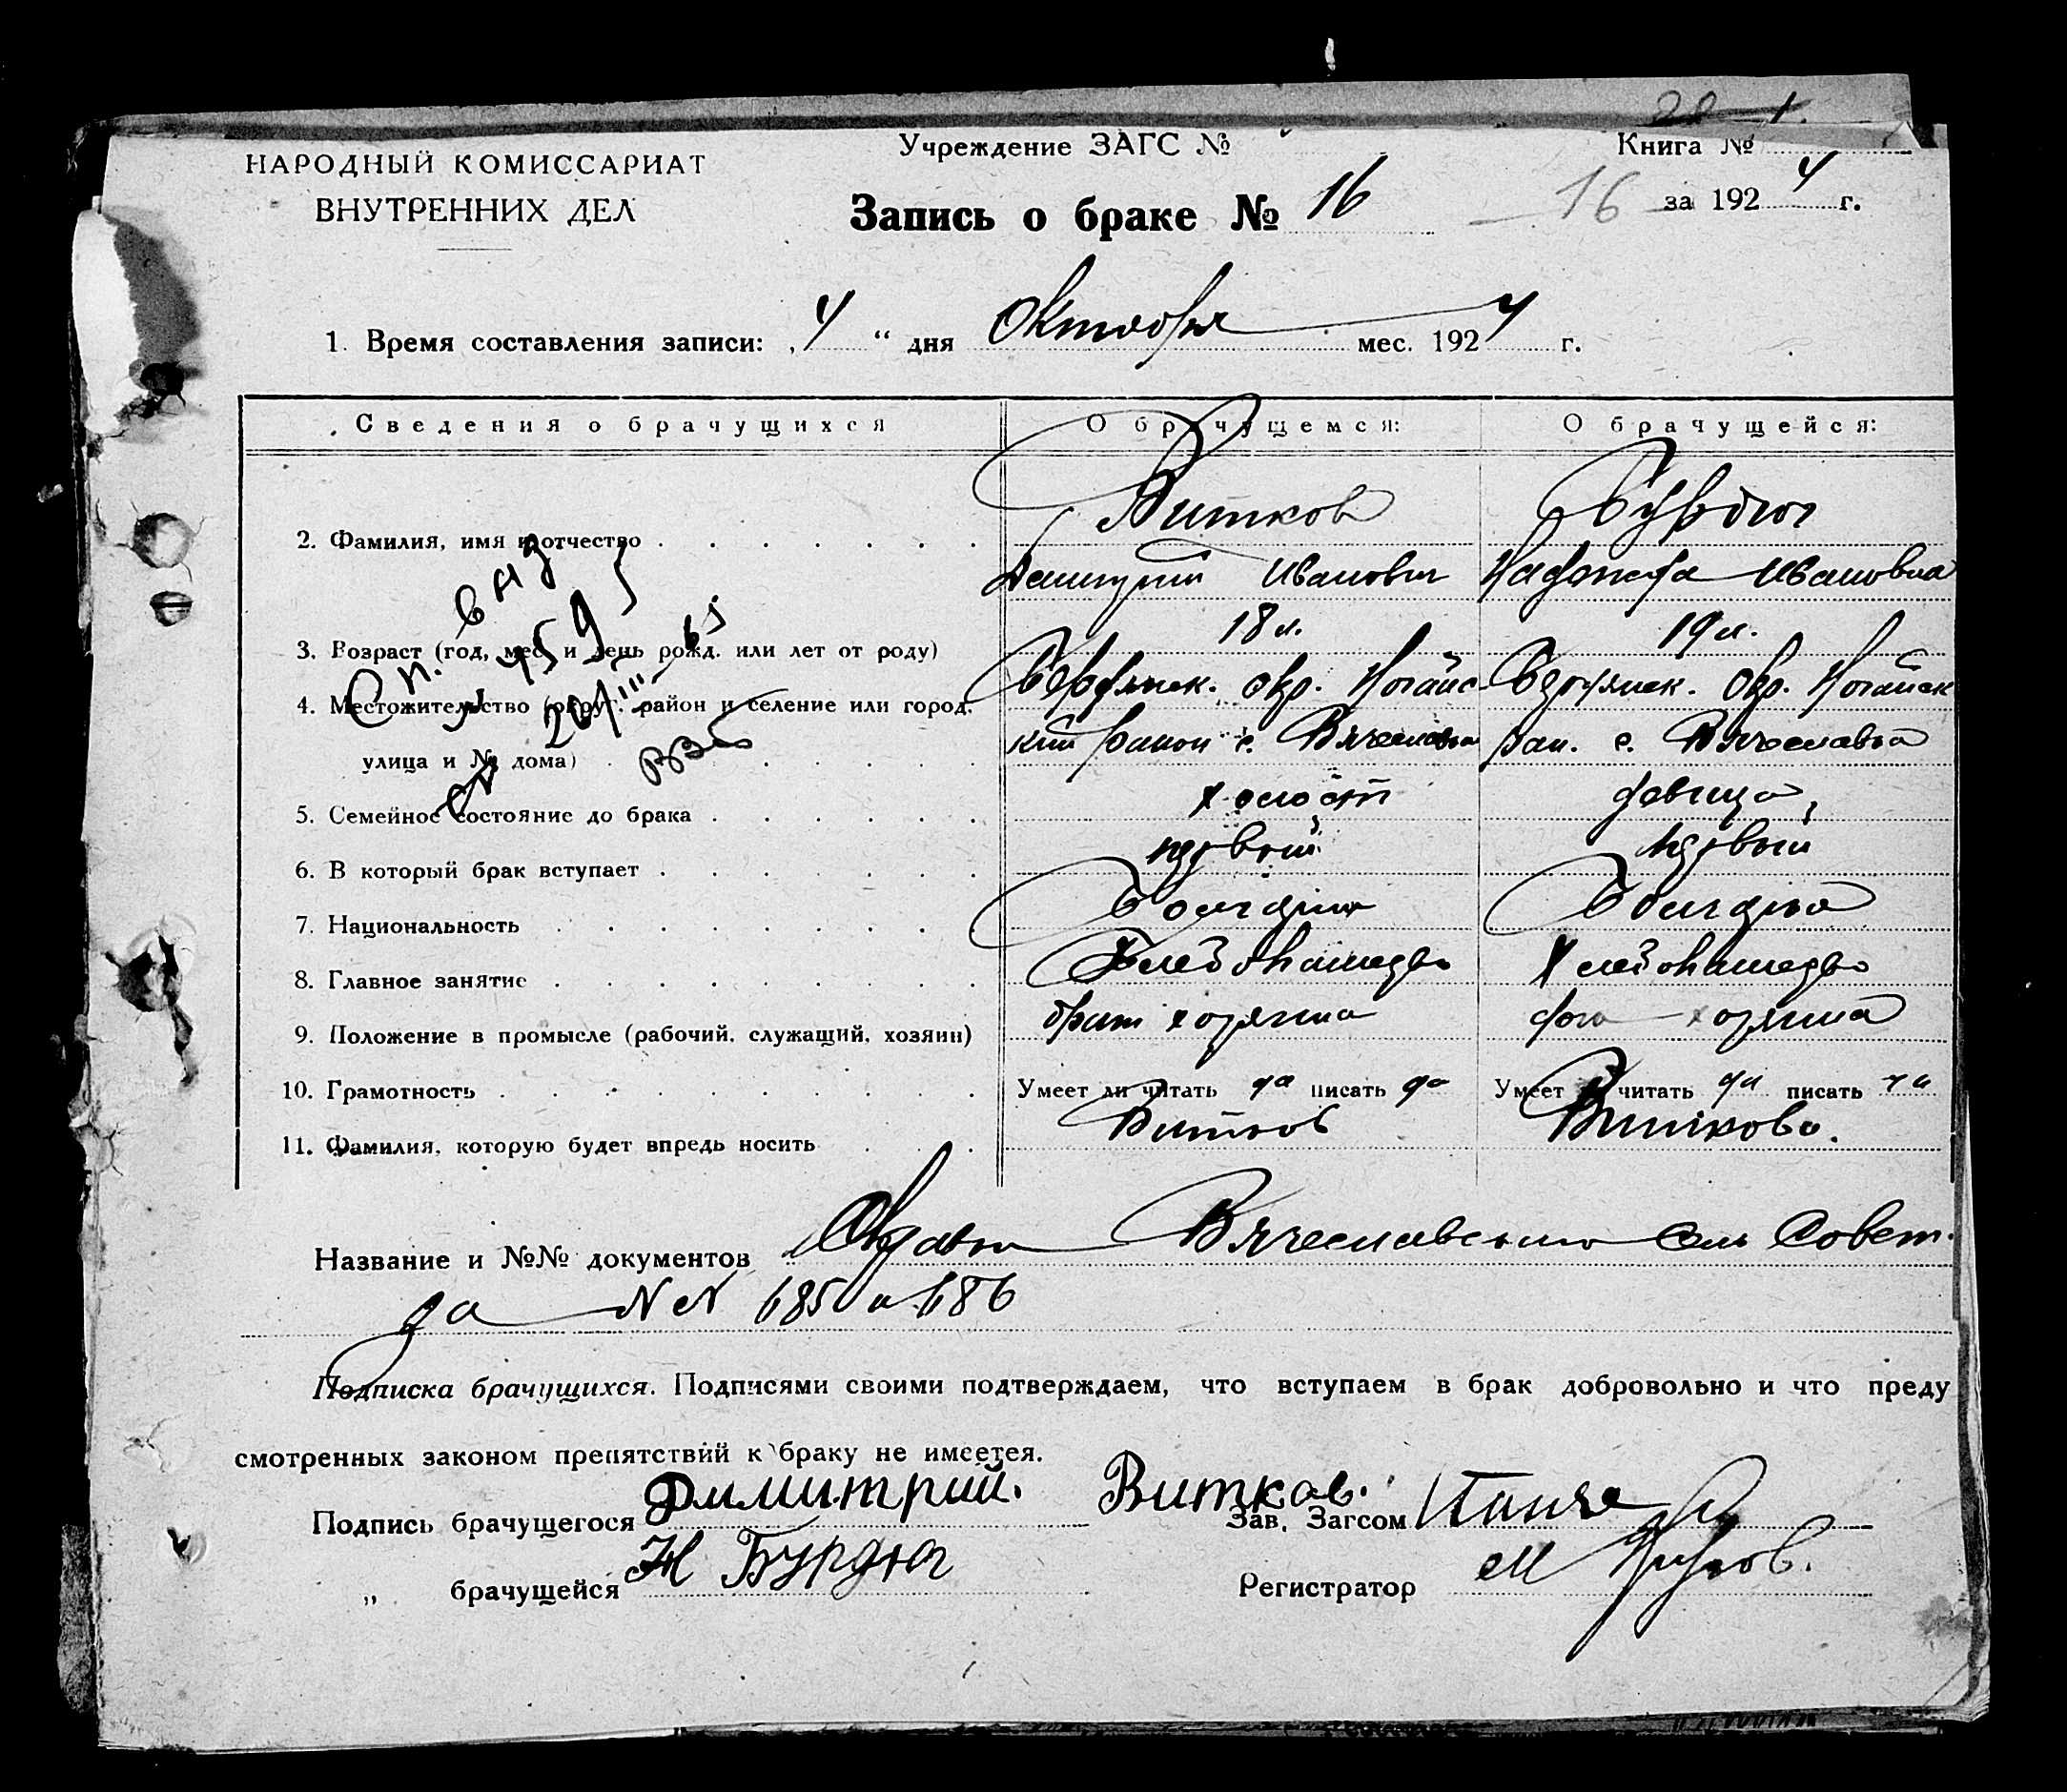 Учреждение ЗАГС №
Книга №
НАРОДНЫЙ КОМИССАРИАТ
ВНУТРЕННИХ ДЕЛ
Запись о браке № 16
16 за 1924 г.
1. Время составления записи: „4 “ дня Октября мес. 1924 г.
Сведения о брачущихся О брачущемся: О брачущейся:
Витков Бурдюг
2. Фамилия, имя и отчество
Дмитрий Иванович Ивановна
18 л. 19 л.
3. Возраст (год, мес. и день рожд. или лет от роду)
Бердянск. окр. Ногайс- Бердянск. окр. Ногайск
4. Местожительство (округ, район и селение или город,
кий район с. Вячеславка рай. с. Вячеславка
улица и № дома)
холост девица
5. Семейное состояние до брака
первый первый
6. В который брак вступает
Болгарин Болгарка
7. Национальность
Хлебопашество Хлебопашество
8. Главное занятие
брат хозяина хозяина
9. Положение в промысле (рабочий, служащий, хозяин)
10. Грамотность Умеет ли читать да писать да Умеет ли читать да писать да
Витков Виткова.
11. Фамилия, которую будет впредь носить
Название и №№ документов Вячеславского Сель Совет.
за №№ 685 и 686
Подписка брачущихся. Подписями своими подтверждаем, что вступаем в брак добровольно и что преду
смотренных законом препятствий к браку не имеется.
Подпись брачущегося Димитрий. Витков. Зав. Загсом
„ брачущейся Н Бурдюг Регистратор М